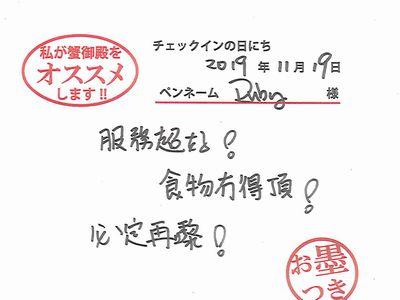 私が蟹御殿を
オススメ
します!!
チェックインの日にち
2019 年 11月 19日
ペンネーム Ruby 様
服務超好!
食物冇得頂!
必定再嚟!
お墨
つき